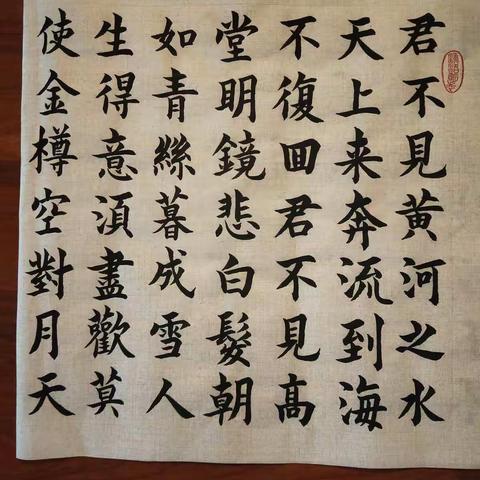 君不見黃河之水
天上来奔流到海
不復回君不見高
堂明鏡悲白髮朝
如青絲暮成雪人
生得意須盡歡莫
使金樽空對月天